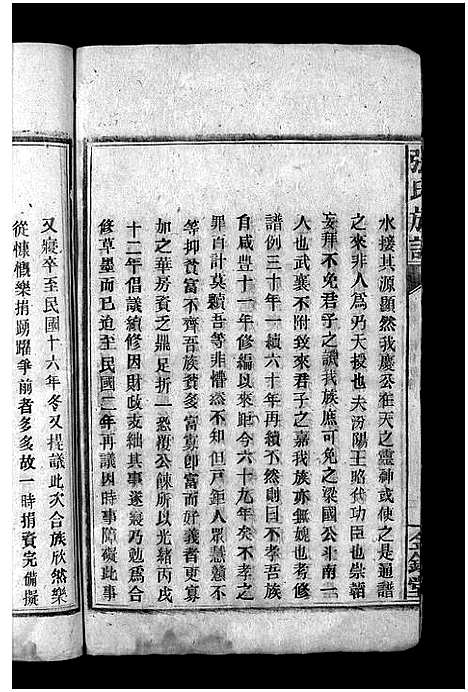 張氏族譜
水接其源顯然我慶公在天之靈神或使之是通譜
之來非人爲乃天授也夫汾陽王昭代功臣也崇韜
妄拜不免君子之譏我族庶可免之梁國公斗南一
人也武襄不附致來君子之嘉我族亦無媿也考修
譜例三十年一續六十年再續不然則曰不孝吾族
自咸豐十一年修編以來距今六十九年矣不孝之
罪百計莫贖吾等非懵然不知但戶鉅人眾愚不
等抑貧富不齊吾族貧多富寡卽富而好義者更寡
加之華房資乏鼎足折一恐覆公餗所以光緒丙戌
十二年倡議續修因財政支絀其事遂寢乃勉爲合
修草墨而已迨至民國二年再議因時事障礙此事
又寢卒至民國十六年冬又提議此次合族欣然樂
從慷慨樂捐踴躍爭前者多多故一時捐資完備擬